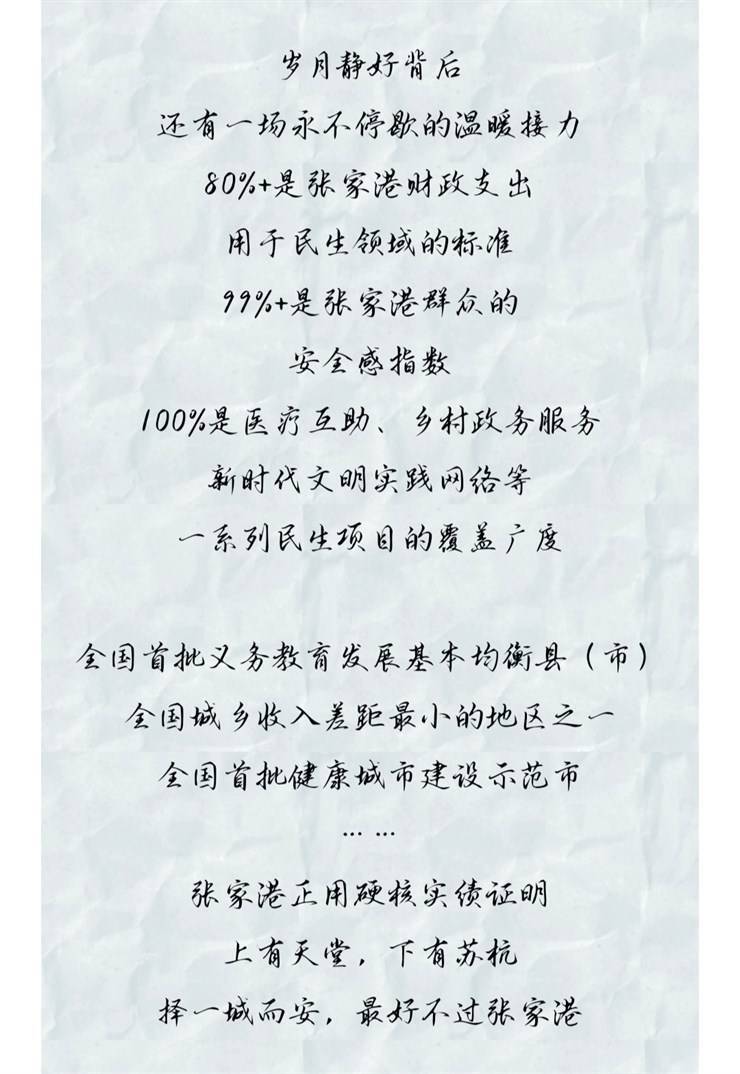 岁月静好背后
还有一场永不停歇的温暖接力
80%+是张家港财政支出
用于民生领域的标准
99%+是张家港群众的
安全感指数
100%是医疗互助、乡村政务服务
新时代文明实践网络等
一系列民生项目的覆盖广度
全国首批义务教育发展基本均衡县（市）
全国城乡收入差距最小的地区之一
全国首批健康城市建设示范市
… …
张家港正用硬核实绩证明
上有天堂，下有苏杭
择一城而安，最好不过张家港